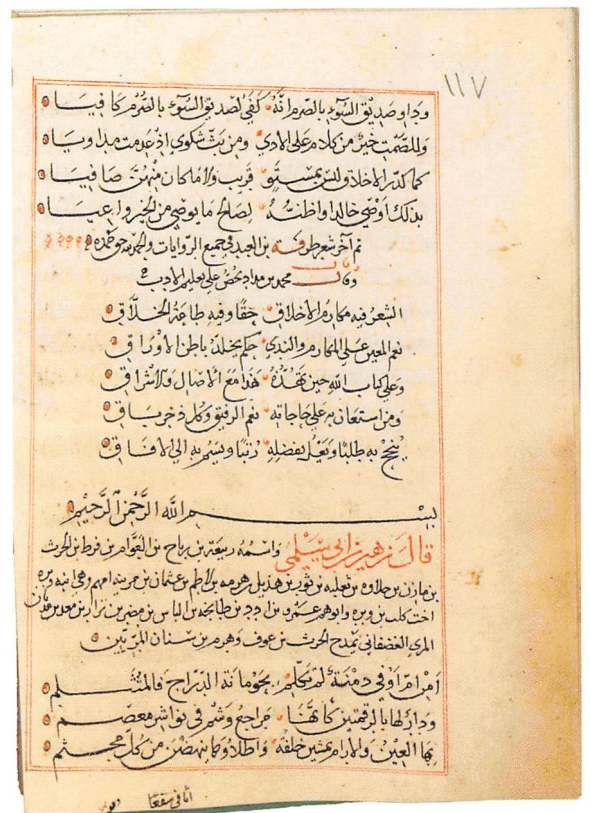 ١١٧
وداو صديق السوء بالصرم انه كفى لصديق السوء بالصرم كافيا
وللصمت خير من كلام على الاذى ومن بث شكوى اذ عدمت مداويا
كما كدر الاخلاق وليس بمستو قريب ولا ما كان منهن صافيا
بذلك اوصى خالد او اظنه لصالح ما يوصى من الخير واعيا
تم اخر شعر طرفة بن العبد في جميع الروايات والحمد لله حق حمده
وقال محمد بن مداد يحض على تعليم الادب
الشعر فيه مكارم الاخلاق حقا وفيه طاعة الخلاق
نعم المعين على المكارم والندى حكم يخلده باطن الاوراق
وعلى كتاب الله حين تهذه هذا مع الآصال والاشراق
ومن استعان به على حاجاته نعم الرفيق وكل ذخر باق
ينجح به طلبا ويعل بفضله رتبا ويسم به الى الافاق
بسم الله الرحمن الرحيم
قال زهير بن ابي سلمى واسمه ربيعة بن رباح بن القوام بن قرط بن الحرث
بن مازن بن حلاوه بن ثعلبه بن ثور بن هذيل هرمه بن الاطم بن عثمان بن مزينه امهم وهي ابنة وبره
اخت كلب بن وبره وابوهم عمرو بن ادد بن طابخه بن الياس بن مضر بن نزار بن معد بن عدنان
المري الغضفاني يمدح الحرث بن عوف وهرم بن سنان المريين
امن ام اوفى دمنة لم تكلم بحومانة الدراج فالمتثلم
ودار لها بالرقمتين كانها مراجع وشم في نواشر معصم
بها العين والارام يمشين خلفة واطلاؤها ينهضن من كل مجثم
اثافي سفعا